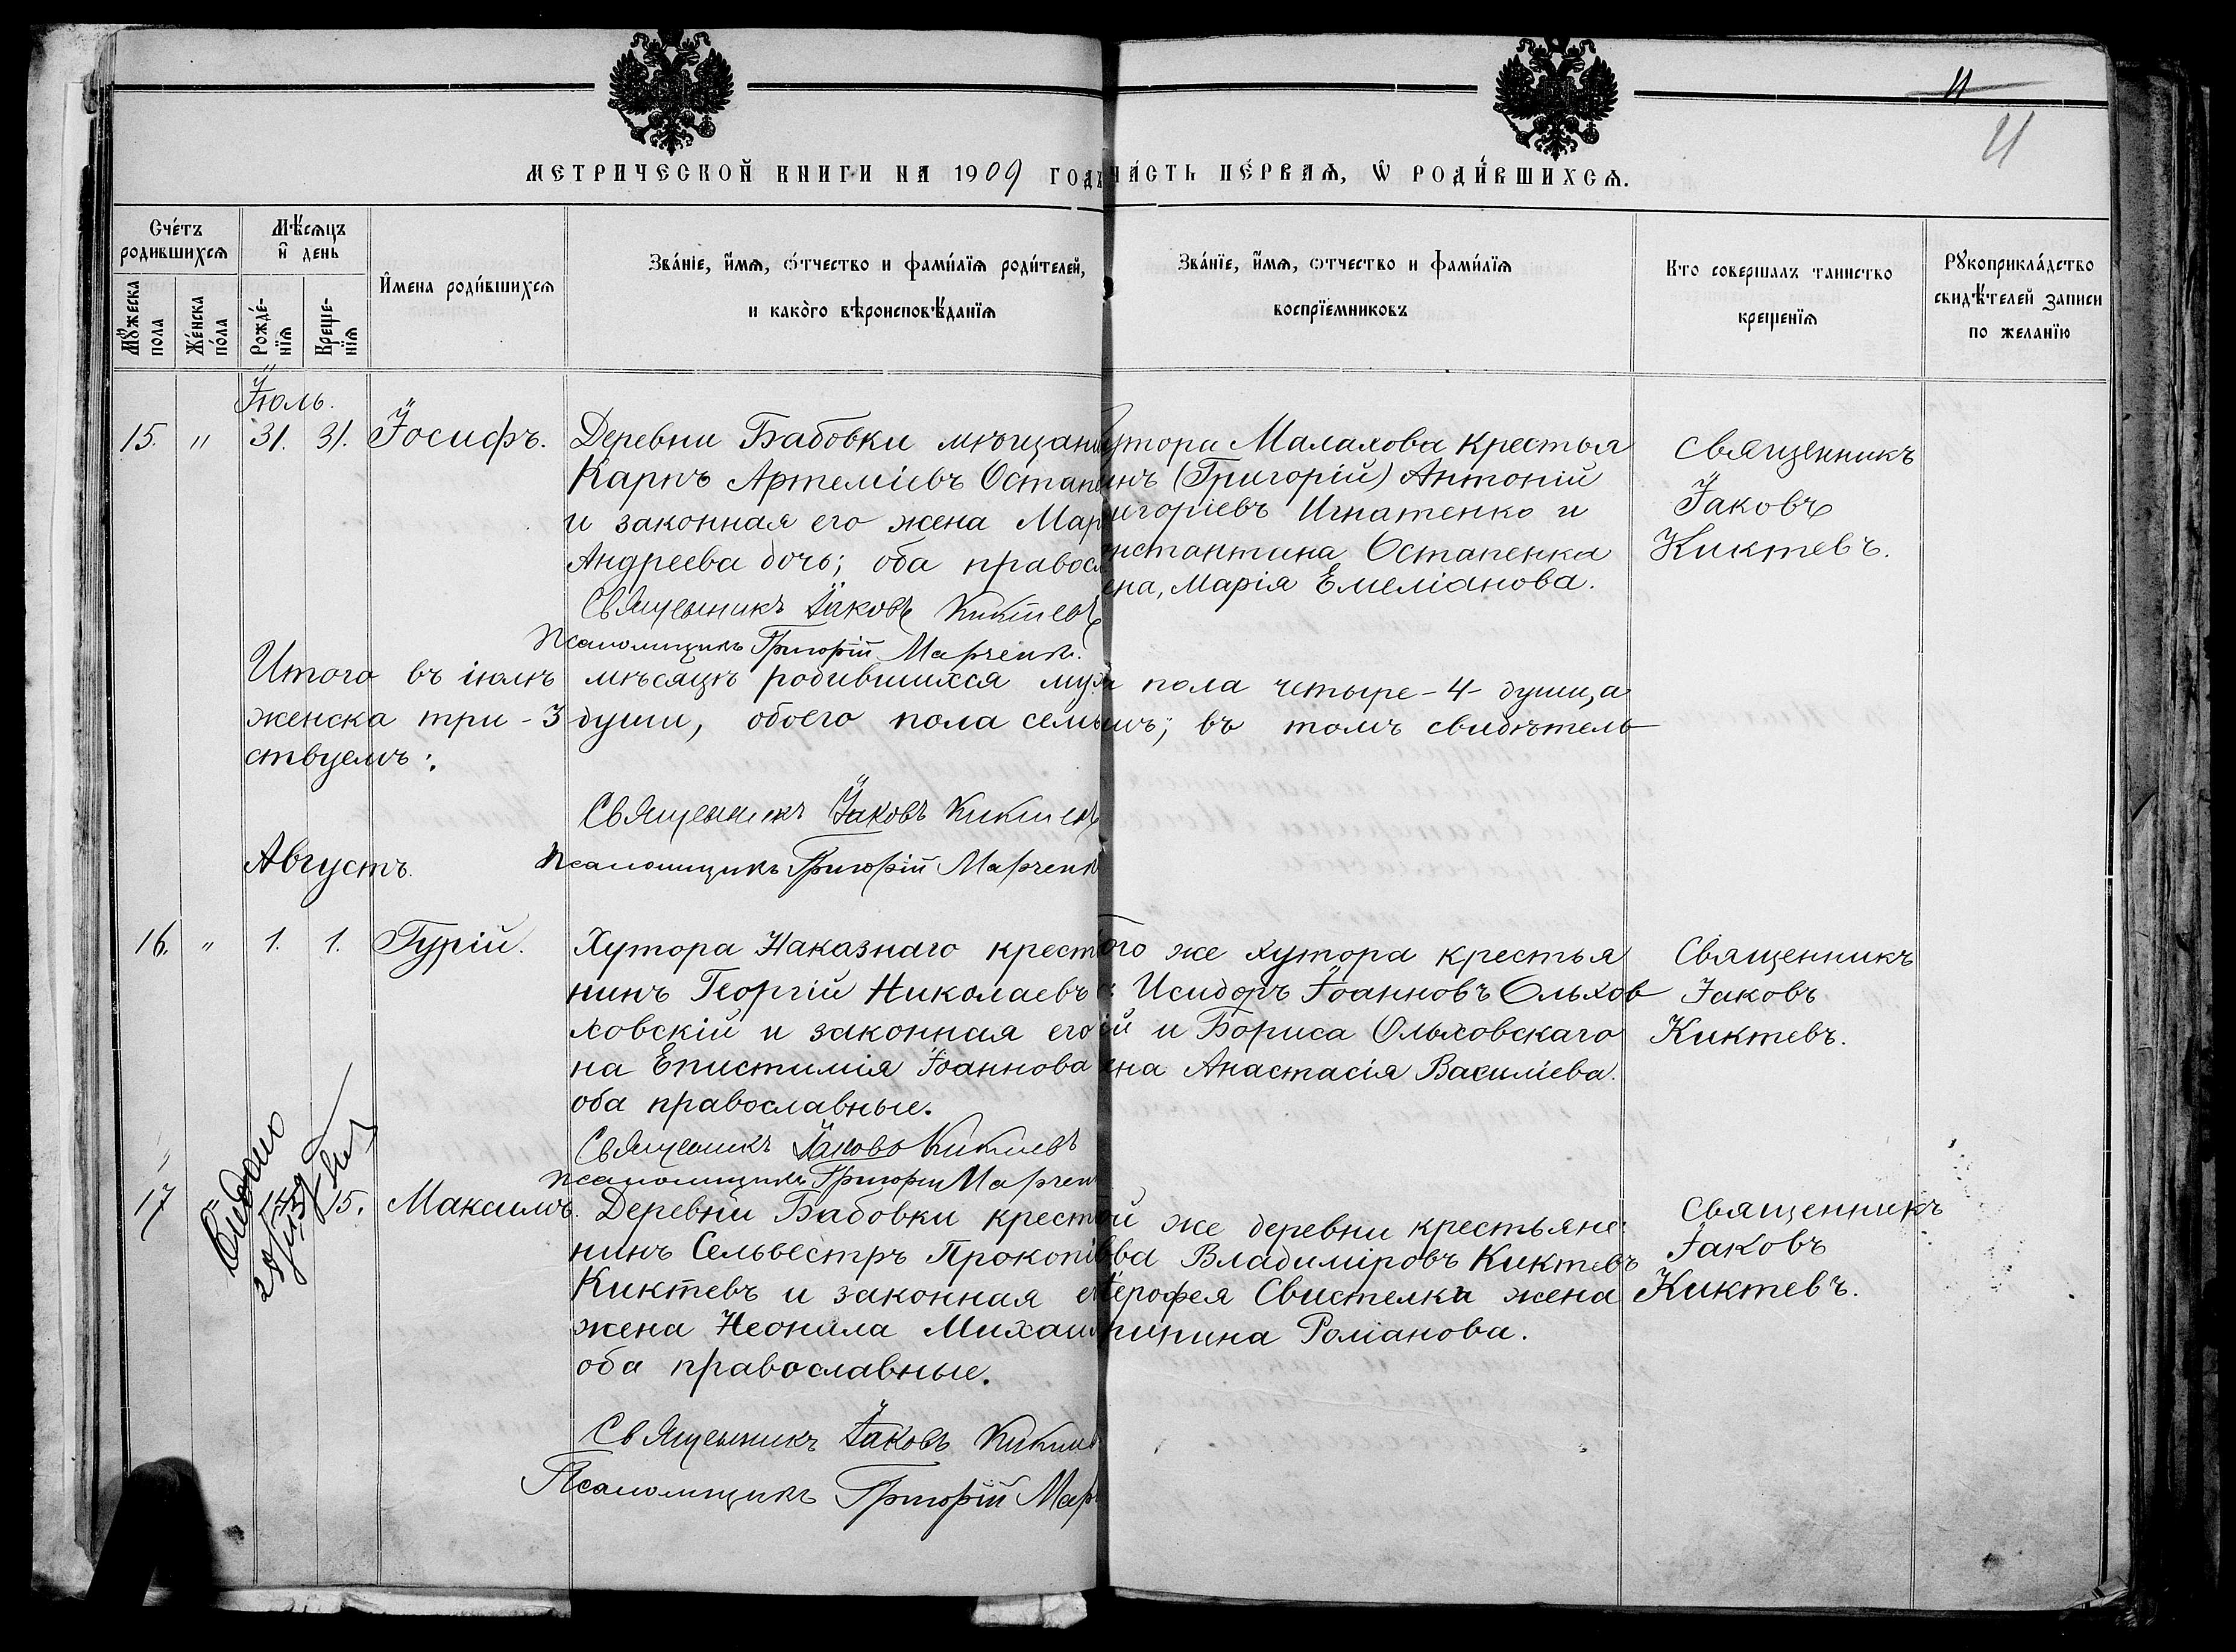 11
11
МЕТРИЧЕСКОЙ КНИГИ НА 1909 ГОДЪ
ЧА́СТЬ ПЕ́РВАѦ, Ѡ РОДИ́ВШИХСѦ.
Счéтъ родившихсѧ
Мѣсѧцъ и҆ день
Мꙋжеска пола
Же́нска по́ла
Рожде́-нїѧ
Креще-нїѧ
И҆мена роди́вшихсѧ
Зва́нїе, и҆́мѧ, ѻ҆́тчество и фами́лїѧ роди́телей,
и како́гѡ вѣроисповѣ́данїѧ
Зва́нїе, и҆́мѧ, ѻтчество и фами́лїѧ
воспрїе́мниковъ
Кто совершалъ таинство
крещенїѧ
Рꙋкоприкла́дство
свидѣ́телей записи
по желанїю
Іюль.
15. " 31. 31. Іосифъ.
Деревни Бабовки мѣщани
Карпъ Артеміевъ Остапе
и законная его жена Мар
Андреева дочь; оба правосл
Священникъ Іаковъ Киктевъ
Псаломщикъ Григорій Марченк.
утора Малахова крестья
инъ (Григорій) Антоній
игоріевъ Игнатенко и
нстантина Остапенка
ена, Марія Емеліанова.
Священникъ
Іаковъ
Киктевъ.
Итого въ іюлѣ мѣсяцѣ родившихся муж. пола четыре-4-души, а
женска три-3 души, обоего пола семь; въ томъ свидѣтель
ствуемъ:
Священникъ Іаковъ Киктев
Псаломщикъ Григорій Марченк
Августъ.
16. " 1. 1. Гурій.
Хутора Наказнаго крест
нинъ Георгій Николаевъ
ховскій и законная его
на Епистимія Іоаннова
оба православные.
Священникъ Іаковъ Киктевъ
Псаломщикъ Григорій Марчен
ого же хутора крестья
: Исидоръ Іоанновъ Ольхов
ій и Бориса Ольховскаго
ена Анастасія Василіева.
Священникъ
Іаковъ
Киктевъ.
Видано
17 " 15. Максимъ.
Деревни Бабовки крест
нинъ Сельвестръ Прокопіе
Киктевъ и законная е
жена Неонила Михаил
оба православные.
Священникъ Іаковъ Кикте
Псаломщикъ Григорій Мар
ой же деревни крестьяне:
ва Владиміровъ Киктевъ
Іерофея Свистелки жена
рипина Романова.
Священникъ
Іаковъ
Киктевъ.